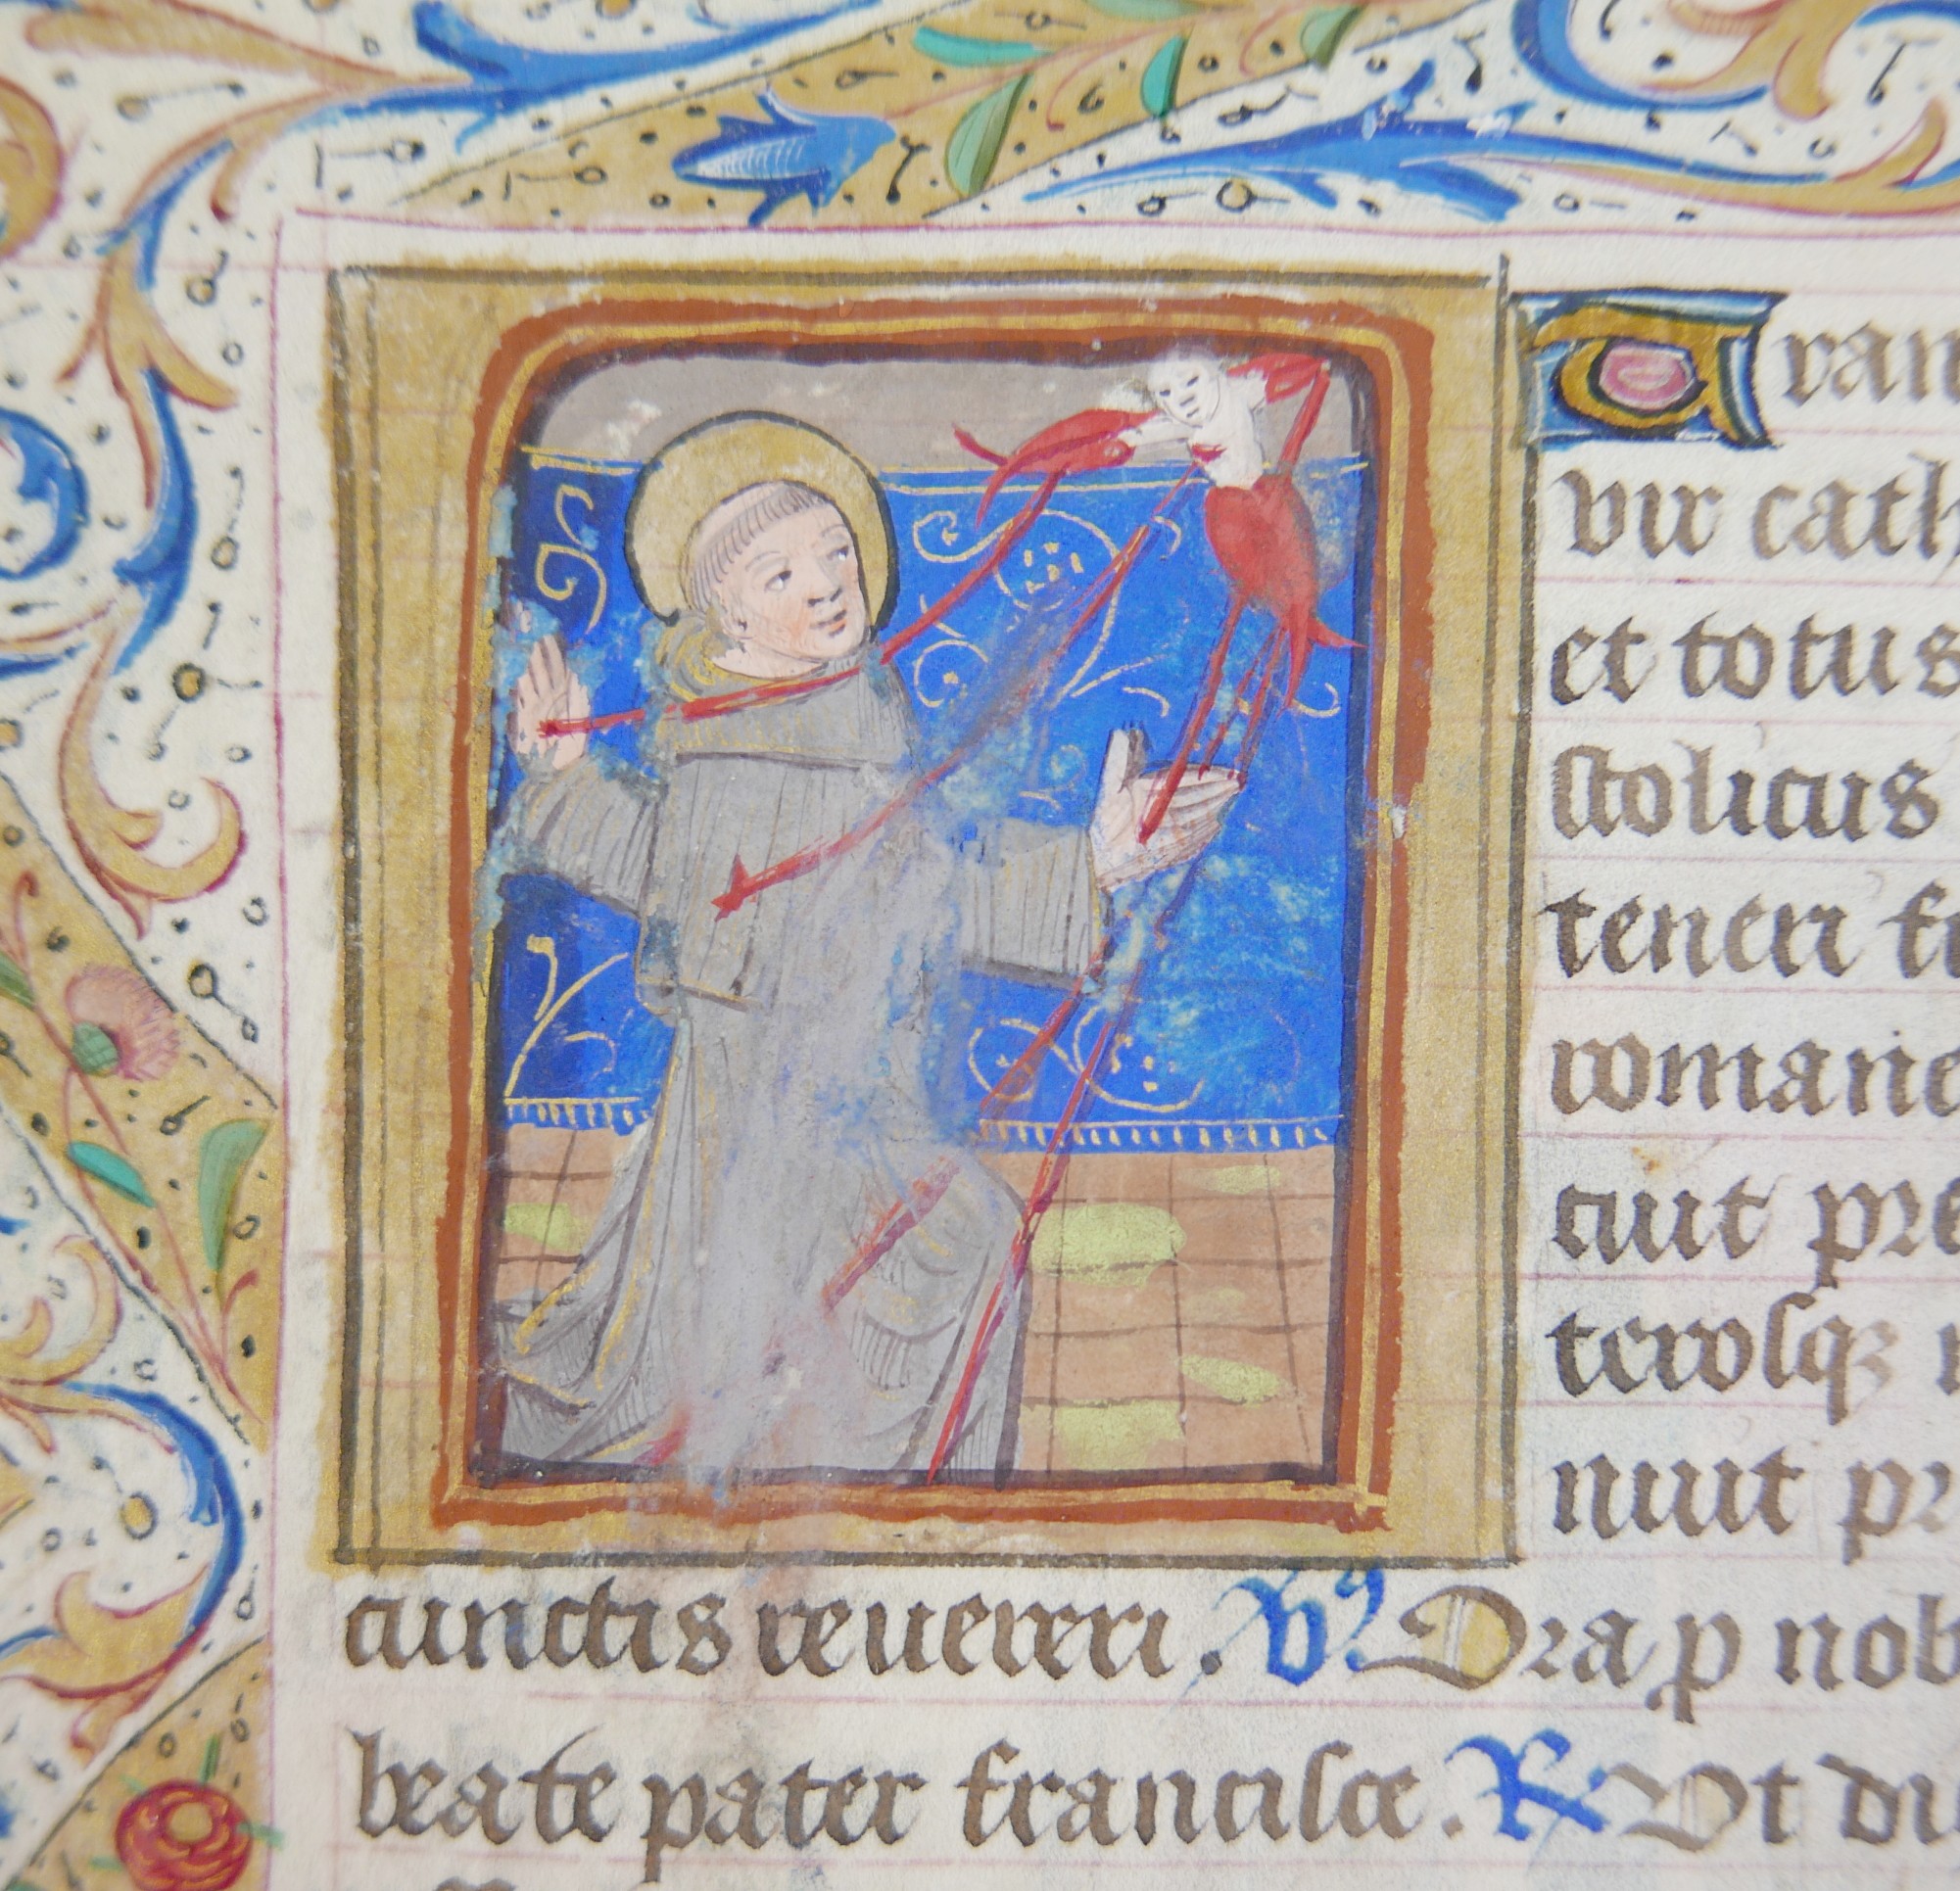 Fran
vir cath
et totus
stolicus
teneri fi
romane
cuit pre
terosqꝫ
nuit pr
cunctis reuereri. V Ora p nob
beate pater francisce. R Vt di